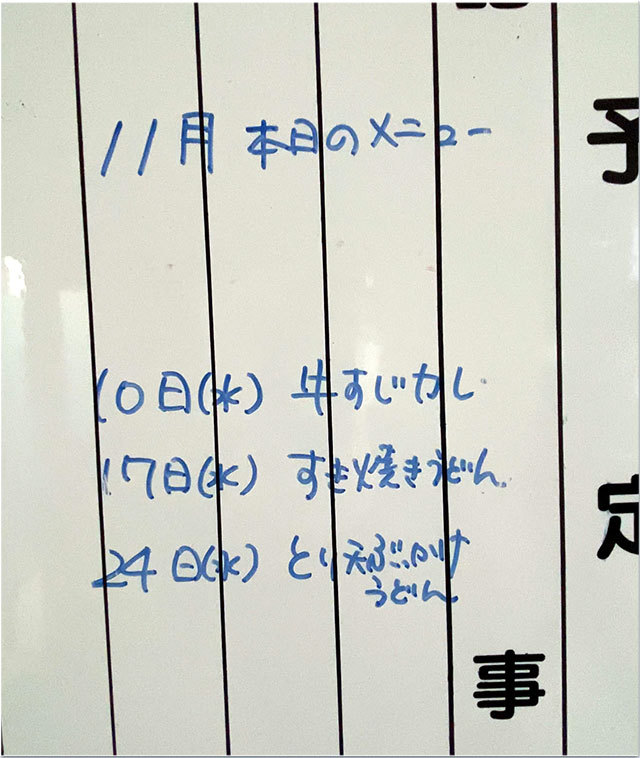 11月 本日のメニュー
10日(水) 牛すじカレ
17日(水) すき焼きうどん
24日(水) とり天ぶっかけ
うどん
予定
事